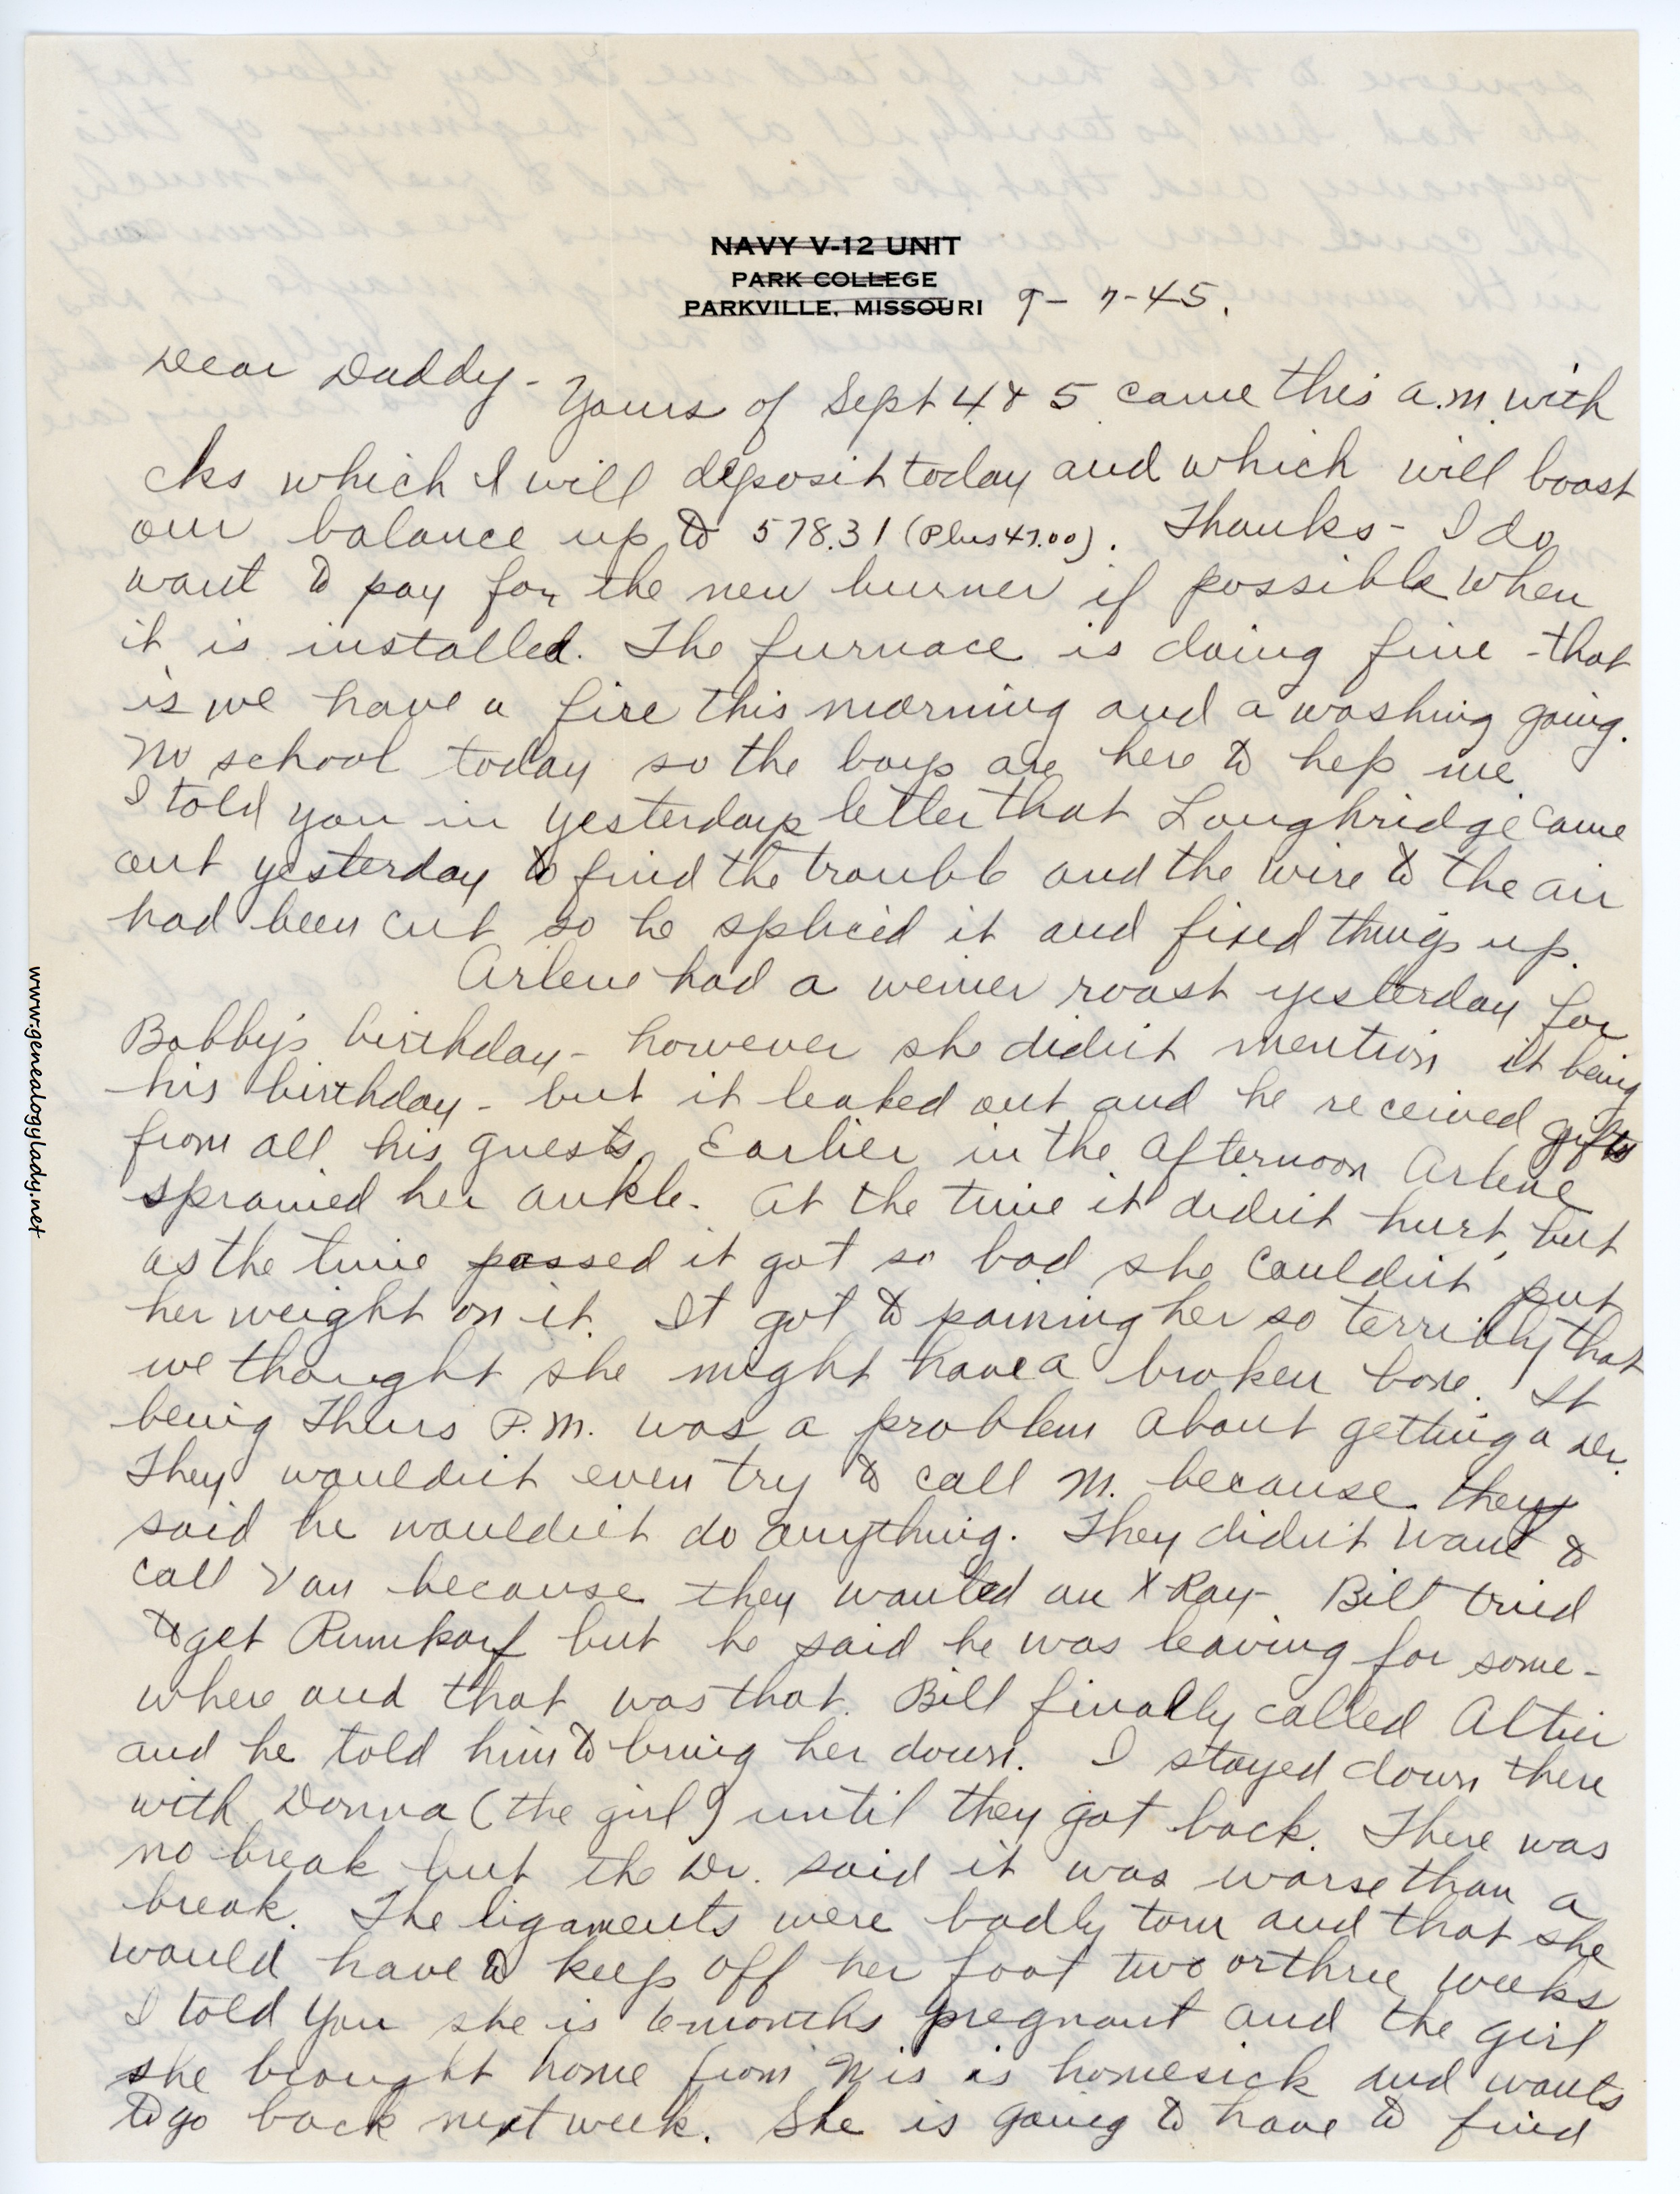 NAVY V-12 UNIT
PARK COLLEGE
PARKVILLE, MISSOURI 9-7-45.
Dear Daddy-
Yours of Sept 4 & 5 came this a.m. with
cks which I will deposit today and which will boost
our balance up to 578.31 (Plus 47.00). Thanks - I do
want to pay for the new burner if possible when
it is installed. The furnace is doing fine - that
is we have a fire this morning and a washing going.
No school today so the boys are here to help me.
I told you in yesterdays letter that Loughridge came
out yesterday to find the trouble and the wire to the air
had been cut so he spliced it and fixed things up.
Arlene had a weiner roast yesterday for
Bobby's birthday - however she didn't mention it being
his birthday - but it leaked out and he received gifts
from all his guests. Earlier in the afternoon Arlene
sprained her ankle. At the time it didn't hurt, but
as the time passed it got so bad she couldn't put
her weight on it. It got to paining her so terribly that
we thought she might have a broken bone. It
being Thurs P.M. was a problem about getting a Dr.
They wouldn't even try to call M. because they
said he wouldn't do anything. They didn't want to
call Van because they wanted an X-Ray. Bill tried
to get Rumkorf but he said he was leaving for some-
where and that was that. Bill finally called Altier
and he told him to bring her down. I stayed down there
with Donna (the girl) until they got back. There was
no break but the Dr. said it was worse than a
break. The ligaments were badly torn and that she
would have to keep off her foot two or three weeks
I told you she is 6 months pregnant and the girl
she brought home from Wis is homesick and wants
to go back next week. She is going to have to find
www.genealogylady.net